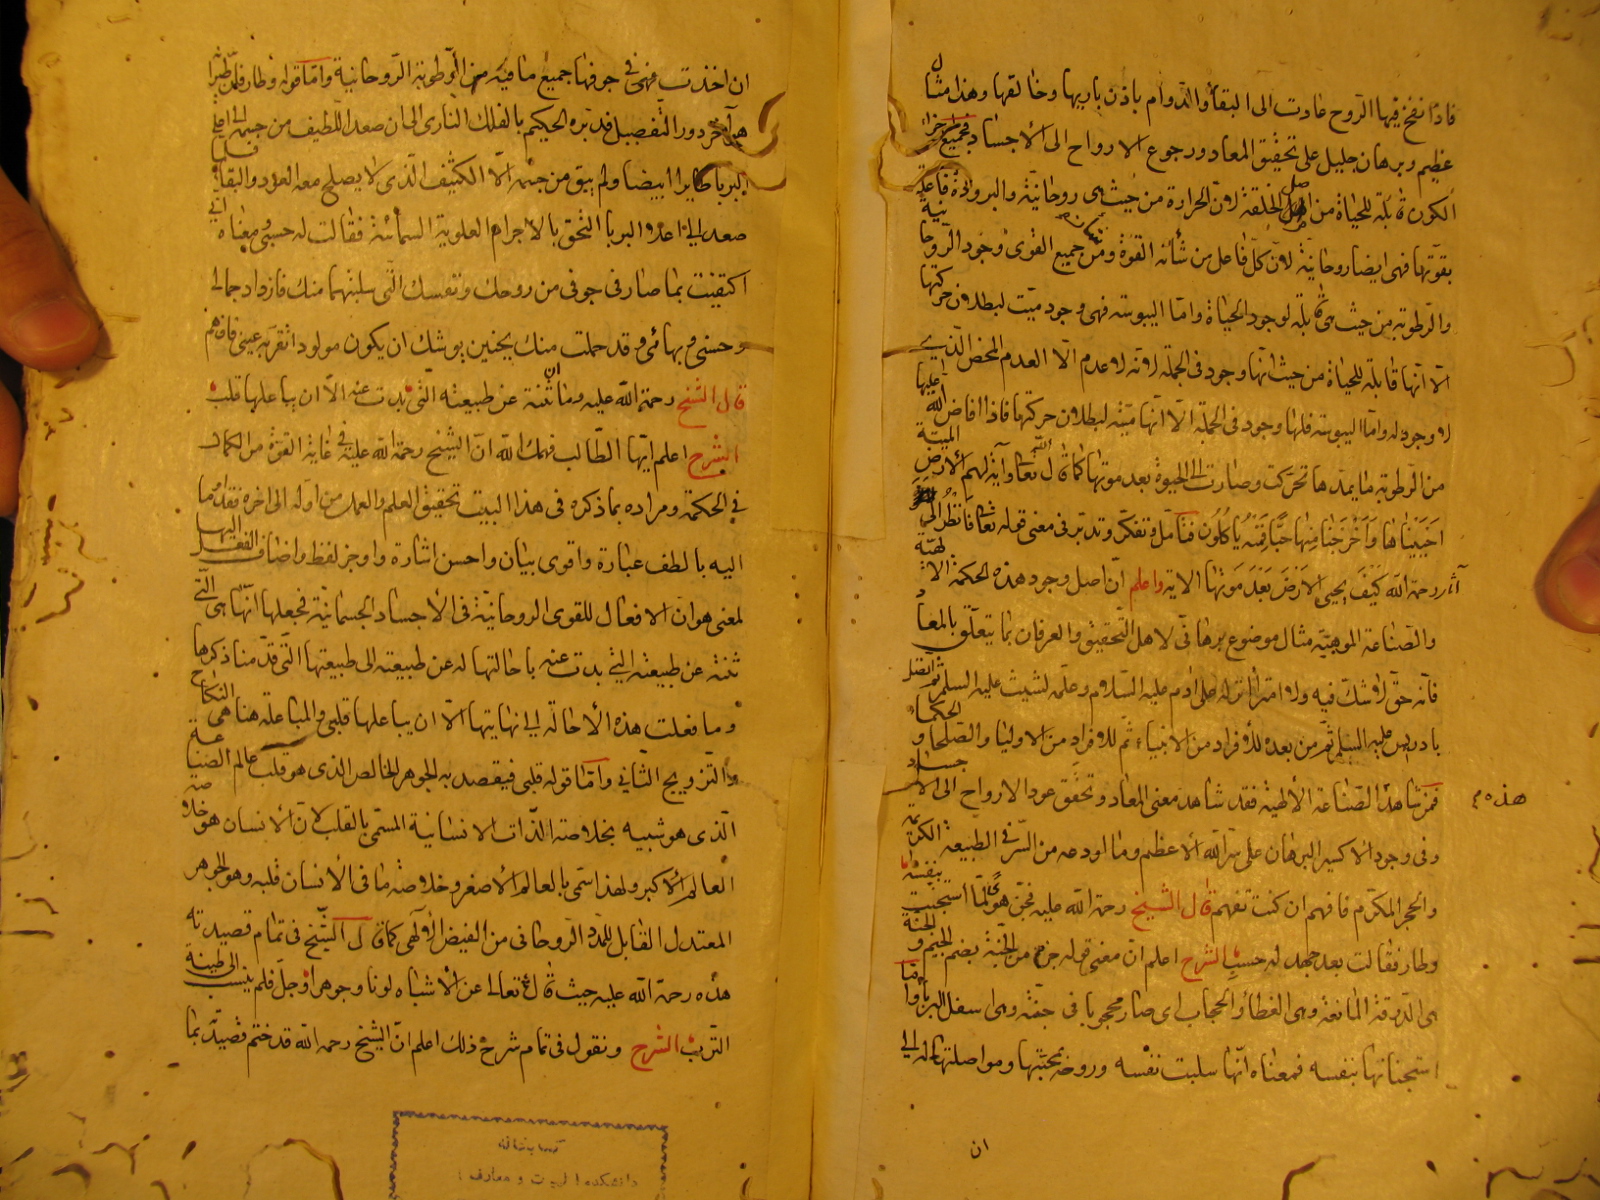 فاذا نفخ فيها الروح عادت الى البقاء والدوام باذن باريها وخالقها وهذا مثال
عظيم وبرهان جليل على تحقيق المعاد ورجوع الارواح الى الأجساد فجميع اجزاء
الكون قابلة للحياة من اصل الخلقة لان الحرارة من حيث هى روحانية والبرودة فاعلة
بقوتها فهى ايضا روحانية لان كل فاعل من شأنه القوة ومن جميع القوى وجود الروحانية
والرطوبة من حيث هى قابلة لوجود الحياة واما اليبوسة فهى وجود ميت لبطلان حركتها
الا انها قابلة للحياة من حيث انها وجود فى الجملة لانه لا عدم الا العدم المحض الذى
لا وجود له واما اليبوسة فلها وجود فى الجملة الا انها ميتة لبطلان حركتها فاذا افاض الله عليها
من الرطوبة ما يمدها تحركت وصارت الى الحيوة بعد موتها كما قال الله تعالى وآية لهم الأرض الميتة
احييناها وأخرجنا منها حبا فمنه يأكلون فتأمل وتفكر وتدبر فى معنى قوله تعالى فانظر الى
آثار رحمة الله كيف يحيى الارض بعد موتها الاية واعلم ان اصل وجود هذه الحكمة الالهية
والصناعة الموهبية مثال موضوع برهانى لاهل التحقيق والعرفان بما يتعلق بالمعاد
فانه حق لا شك فيه ولا امتراء انزله على ادم عليه السلام وعلمه لشيث عليه السلم ثم اتصل
بادريس عليه السلم ثم من بعده للأفراد من الانبياء ثم للافراد من الاوليا والصلحا والحكماء
فمن شاهد هذه الصناعة الألهية فقد شاهد معنى المعاد وتحقق عود الارواح الى الاجساد
وفى وجود الاكسير البرهان على سر الله الأعظم وما اودعه من السر فى الطبيعة الكريمة
والحجر المكرم فافهم ان كنت تفهم قال الشيخ رحمة الله عليه فجن هوى لما استجنت بنفسه
وطار فقالت بعد جهد له حسبى الشرح اعلم ان معنى قوله جن من الجنة بضم الجيم والجنة
هى الدرقة المانعة وهى الغطاء والحجاب اى صار محجوبا فى جنته وهى اسفل البرباء واما
استجنانها بنفسه فمعناه انها سلبت نفسه وروحه بمحبتها ومواصلتها له الى
ان
ان اخذت فهى فى جوفها جميع ما فيه من الرطوبة الروحانية واما قوله وطار فلمن طيرا
آخر دور التفصيل قد دبره الحكيم بالفلك النارى الى ان صعد اللطيف من جسمه الى اعلى
البربا طايرا ابيضا ولم يبق من جسمه الا الكثيف الذى لا يصلح معه العود والبقاء فلما
صعد الى اعلا البربا التحق بالاجرام العلوية السمائية فقالت له حسبى ومعناه انى
اكتفيت بما صار فى جوفى من روحك ونفسك التى سلبتهما منك فازداد جمالى
وحسنى وبهائى وقد حملت منك بجنين يوشك ان يكون مولودا تقر به عينى فافهم
قال الشيخ رحمة الله عليه وما ان ثنته عن طبيعته التى بدت عنه الا ان يباعلها قلبى
الشرح اعلم ايها الطالب فهمك الله ان الشيخ رحمة الله عليه فى غاية القوة من الكمال
فى الحكمة ومراده بما ذكره فى هذا البيت تحقيق العلم والعمل من اوله الى اخره فقد اومأ
اليه بالطف عبارة واقوى بيان واحسن اشارة واوجز لفظ واضاف الفعل اليها
لمعنى هو ان الافعال للقوى الروحانية فى الأجساد الجسمانية فجعلها انها هى التى
ثنته عن طبيعته التى بدت عنه باحالتها له عن طبيعته الى طبيعتها التى قدمنا ذكرها
وما فعلت هذه الأحالة الى نهايتها الا ان يباعلها قلبى والمباعلة هنا هى النكاح
والتزويج الثانى واما قوله قلبى فيقصد به الجوهر الخالص الذى هو قلب عالم الصناعة
الذى هو شبيه بخلاصة الذات الانسانية المسمى بالقلب لان الأنسان هو خلاصة
العالم الأكبر ولهذا سمى بالعالم الأصغر وخلاصة ما فى الأنسان قلبه وهو الجوهر
المعتدل القابل للمدد الروحانى من الفيض الالهى كما قال الشيخ فى تمام قصيدته
هذه رحمة الله عليه حيث قال تعالى عن الأشباه لونا وجوهرا وجل فلم ينسب الى طينة
الترب الشرح ونقول فى تمام شرح ذلك اعلم ان الشيخ رحمه الله قد ختم قصيدته بما
هذه
كتابخانه
دانشكده الهيات و معارف